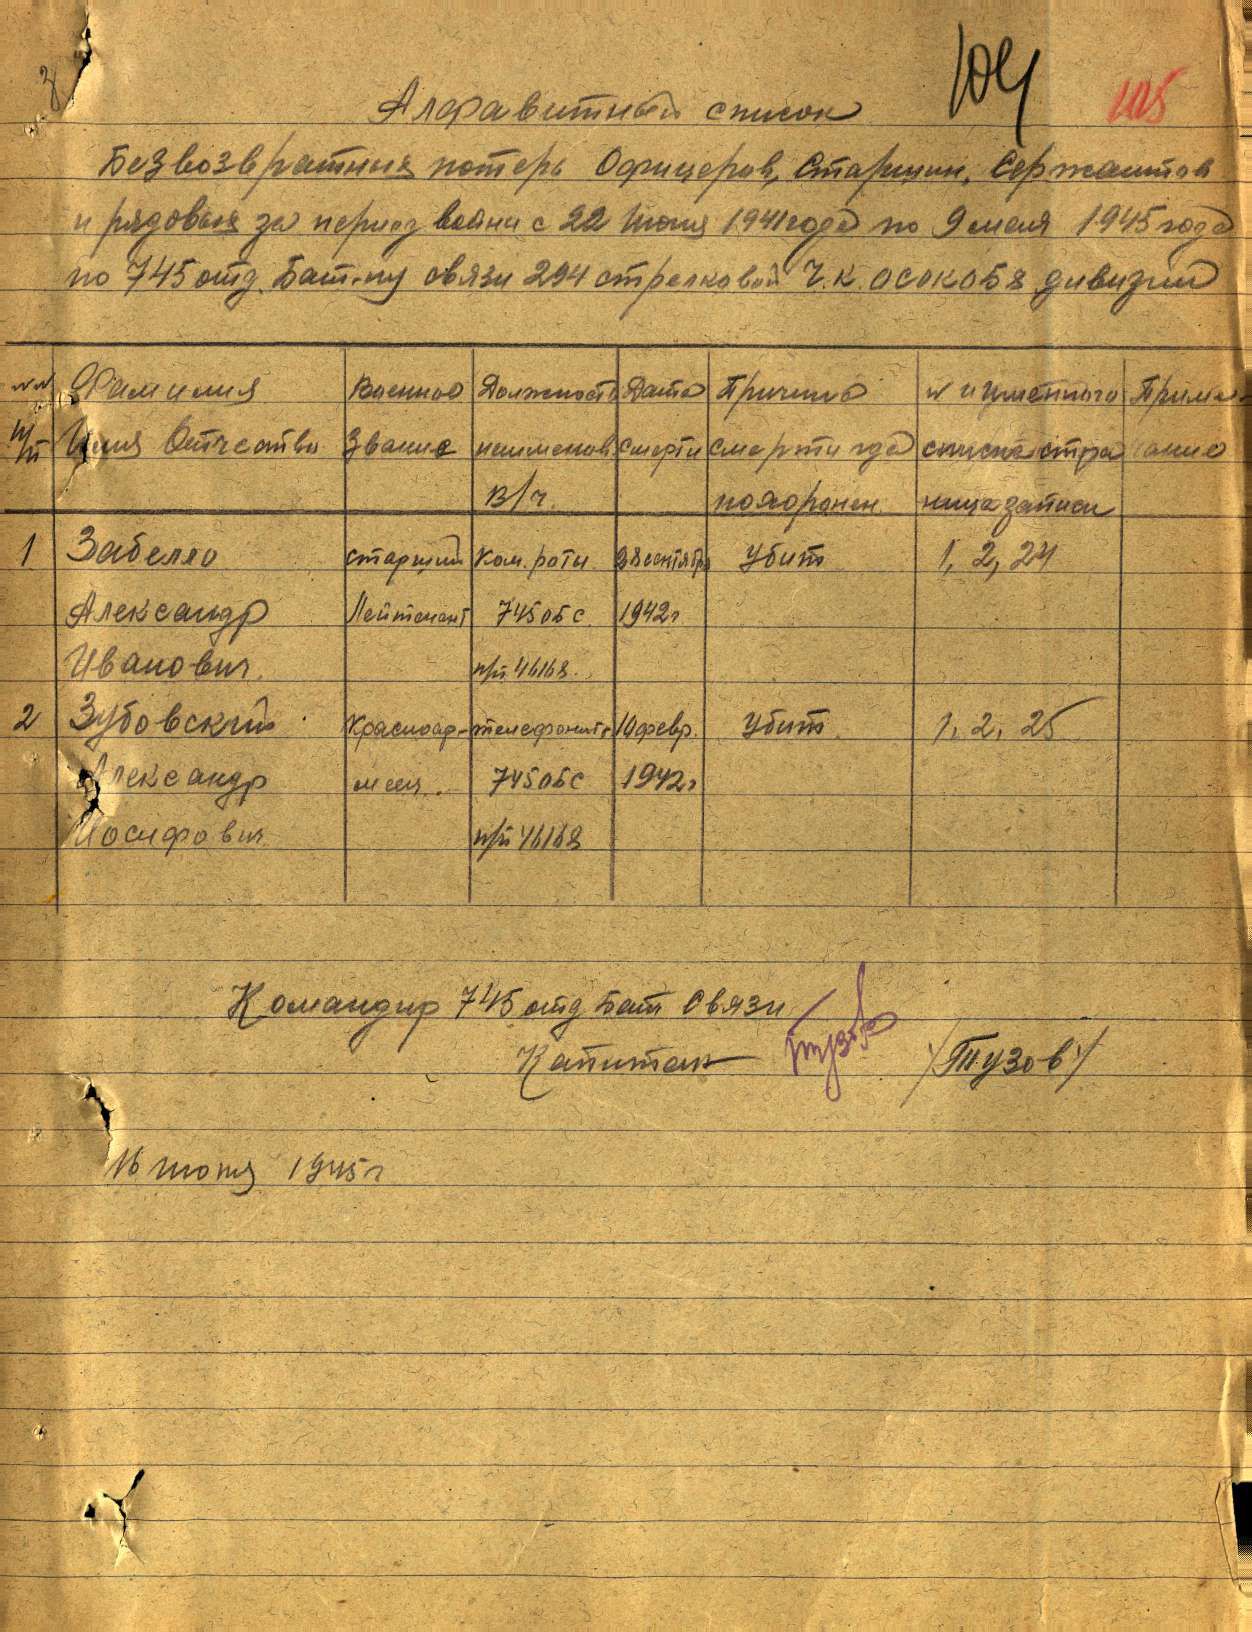 З
104
105
Алфавитный список
Безвозвратных потерь Офицеров, Старшин, Сержантов
и рядовых за период войны с 22 Июня 1941 года по 9 мая 1945 года
по 745 отд. Бат-ну связи 294 стрелковой Ч.К. ОСОКОБЯ дивизии
№№ Фамилия Военное Должность Дата Причина № именного Приме-
п/п Имя Отчество Звание наименов. смерти смерти где списка стра чание
в/ч. похоронен. ница записи
1 Забелло старший Ком. роты 28 сентябр убит 1, 2, 24
Александр Лейтенант 745 обс. 1942г
Иванович. п/п 46168.
2 Зубовский Красноар- телефонист 10 февр. убит. 1, 2, 25
Александр меец. 745 обс 1942г
Иосифович п/п 46168
Командир 745 отд Бат Связи
Капитан Тузов /Тузов/
16 июня 1945 г